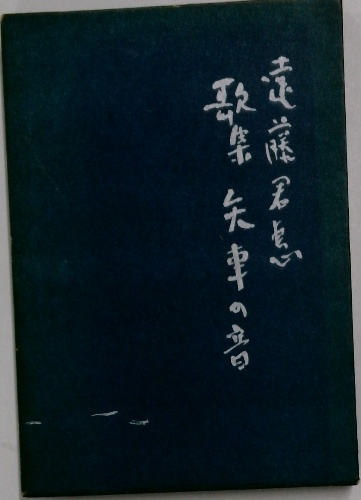 遠藤君恵
歌集 矢車の音